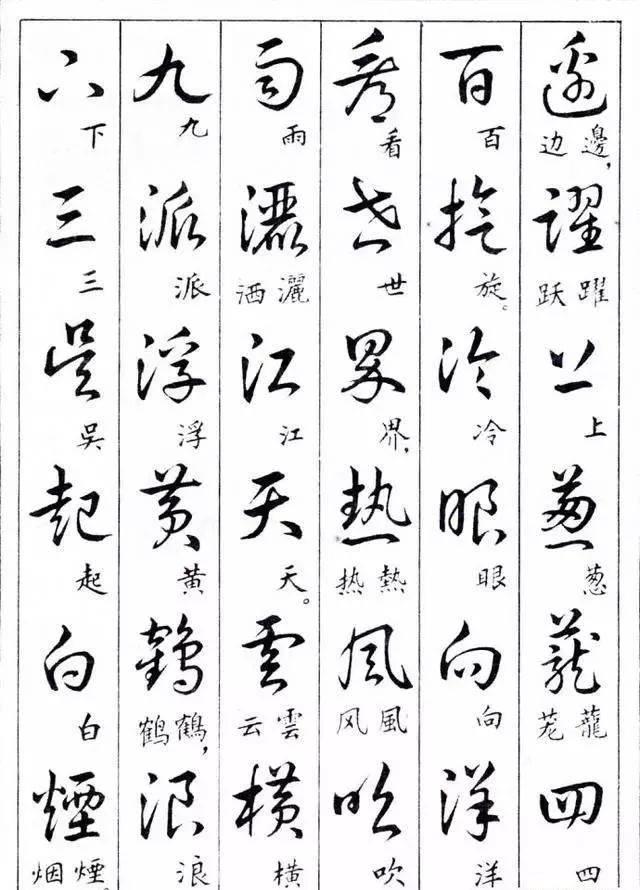 邊躍上葱蘢四
邊，边躍跃上葱蘢茏四
百旋冷眼向洋
百旋。冷眼向洋
看世界熱風吹
看世界，熱热風风吹
雨灑江天雲橫
雨灑洒江天。雲云橫
九派浮黄鶴浪
九派浮黄鶴，鹤浪
下三吳起白煙
下三吳起白煙。烟